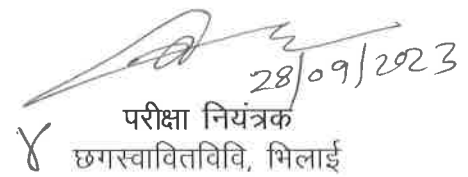 28/09/2023
परीक्षा नियंत्रक
छगस्वावितविवि, भिलाई